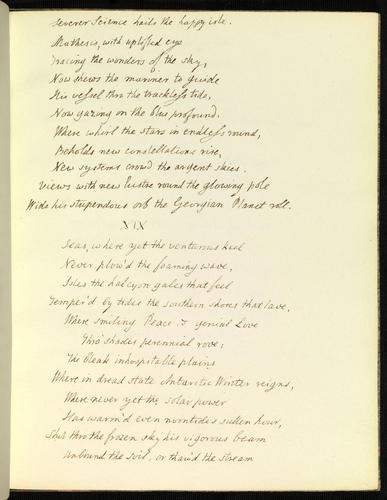 Severer Science hails the happy isle.
Mathesis, with uplifted eye
Tracing the wonders of the sky,
Now shews the mariner to guide
His vessel thro the trackless tide,
Now gazing on the blue profound.
Where whirl the stars in endless round,
Beholds new constellations rise,
New systems crowd the argent skies.
Views with new lustre round the glowing pole
Wide his stupendous orb the Georgian Planet roll.
XIX
Seas, where yet the venturous keel
Never plow'd the foaming wave,
Isles the halcyon gales that feel
Temper'd by tides the southern shores that lave,
Where smiling Peace & genial Love
Thro' shades perennial rove,
The bleak inhospitable plains
Where in dread state Antarctic Winter reigns,
Where never yet the solar power
Has warm'd even noontides sullen hour,
Shot thro the frozen sky his vigorous beam
Unbound the soil, or thaw'd the stream